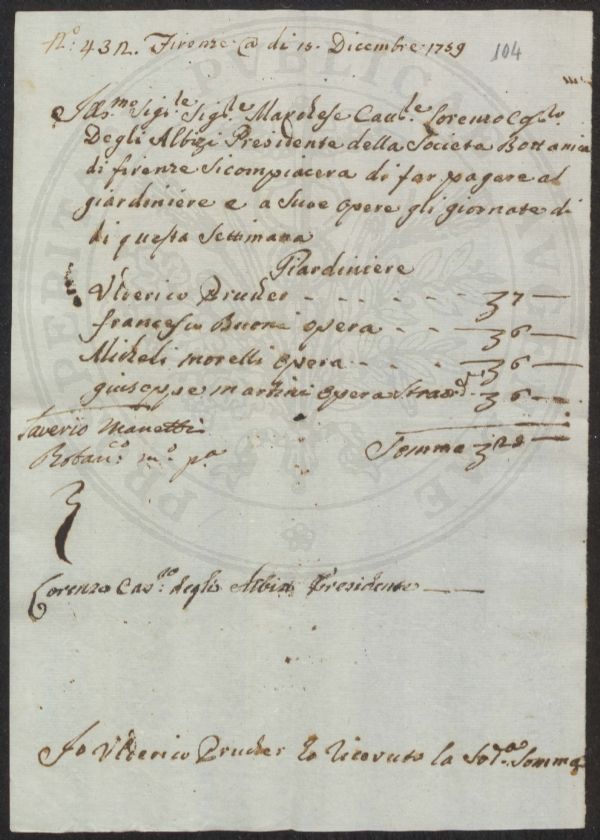 N.º 432. Firenze @ di 15. Dicembre 1759
104
Ill.mo Sig.le Sig.le Marchese Cau.le Lorenzo
Degli Albizi Presidente della Societa Bottanica
di firenze Sicompiacera di far pagare al
giardiniere e a Sue opere gli giornate di
di questa Settimana
Giardiniere
Ulderico Prucher - - - - - - 7 —
francesco Buoni opera - - 6 —
Micheli morelli opera - - 6 —
giuseppe martini opera Straor - 6 —
Saverio Manetti
Botan.co m.o p.a
Somma
Lorenzo Cav.re degli Albizi Presidente —
Io Ulderico Prucher ho ricevuto la Sod.a Somma